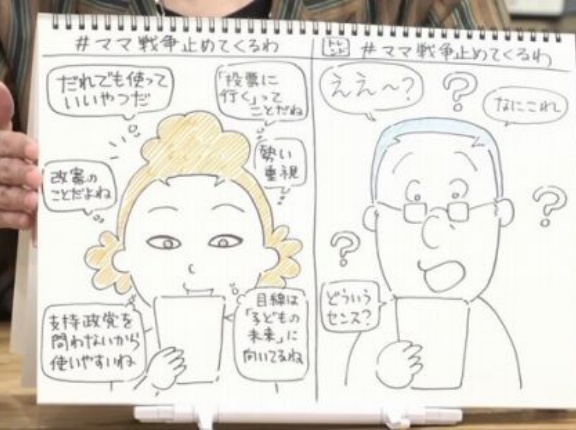 #ママ戦争止めてくるわ
だれでも使って
いいやつだ
「投票に
行く」って
ことだね
改憲の
ことだよね
勢い
重視
支持政党を
問わないから
使いやすいね
目線は
「子どもの
未来」に
向いてるね
トレ
ンド
#ママ戦争止めてくるわ
ええ〜?
?
なにこれ
?
?
どういう
センス?